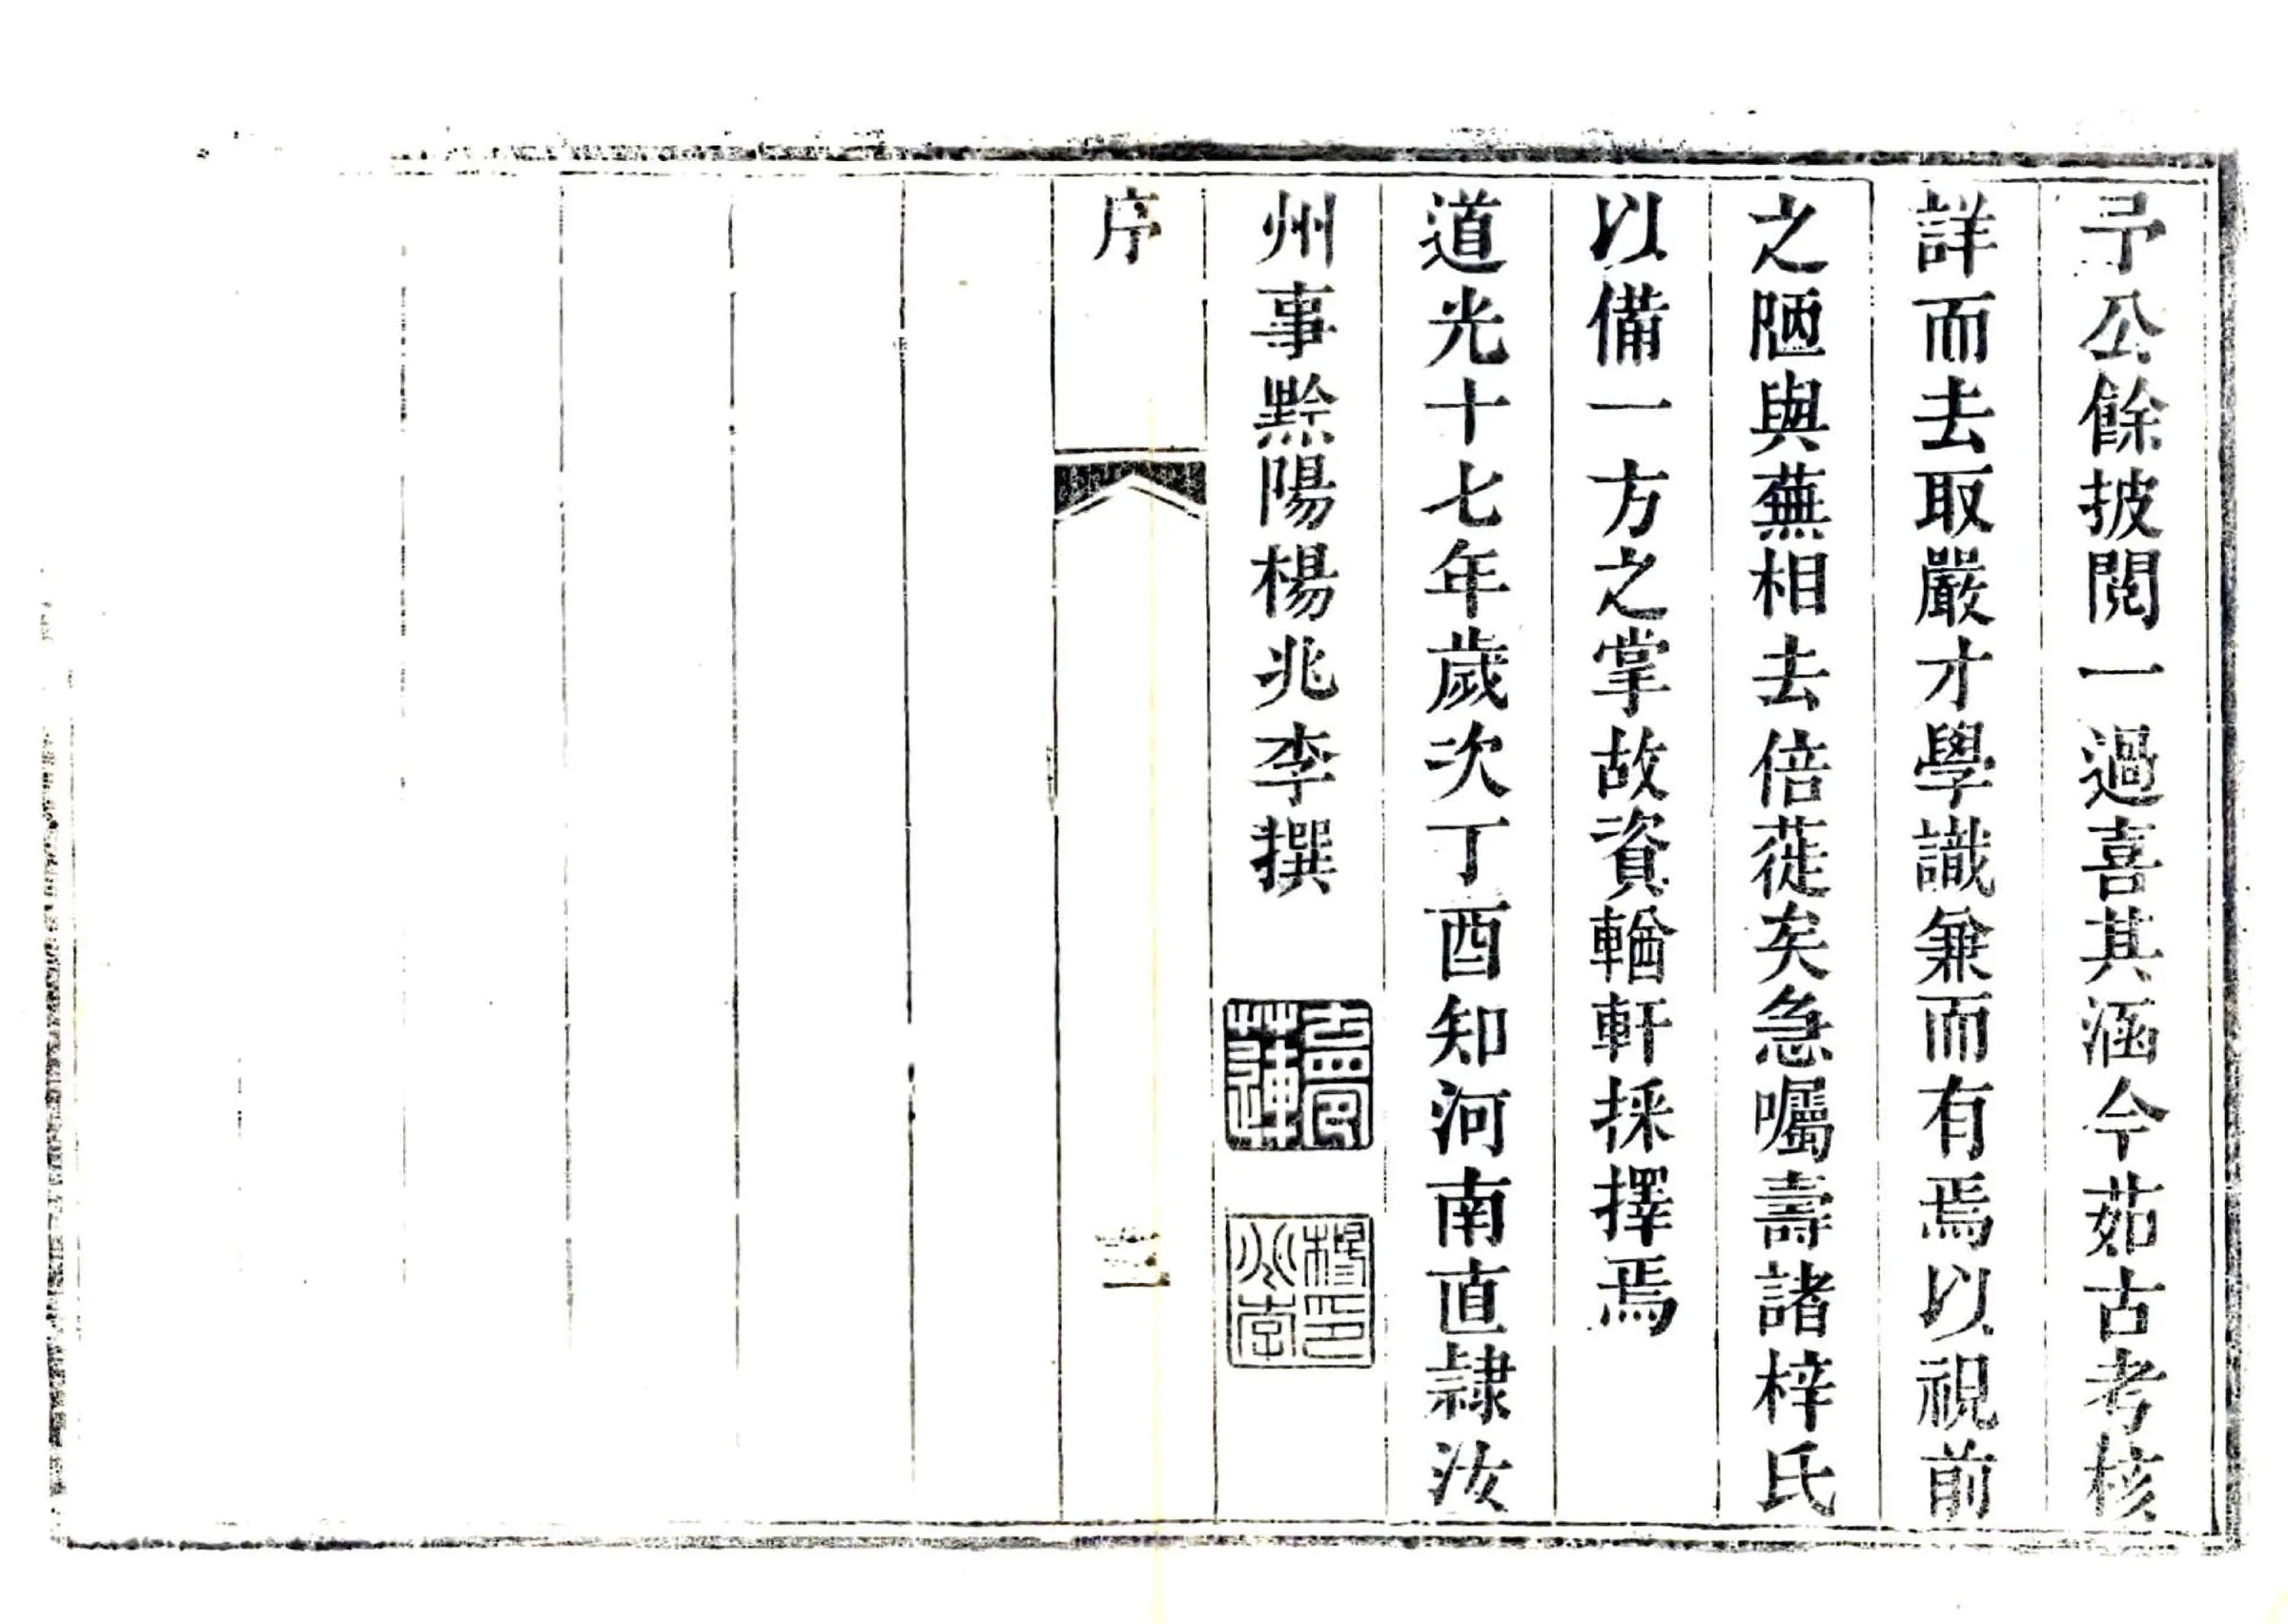 予公餘披閱一過喜其涵今茹古考核
詳而去取嚴才學識兼而有焉以視前
之陋與蕪相去倍蓰矣急囑壽諸梓氏
以備一方之掌故資輶軒採擇焉
道光十七年歲次丁酉知河南直隸汝
州事黔陽楊兆李撰
楊印兆李
序
三